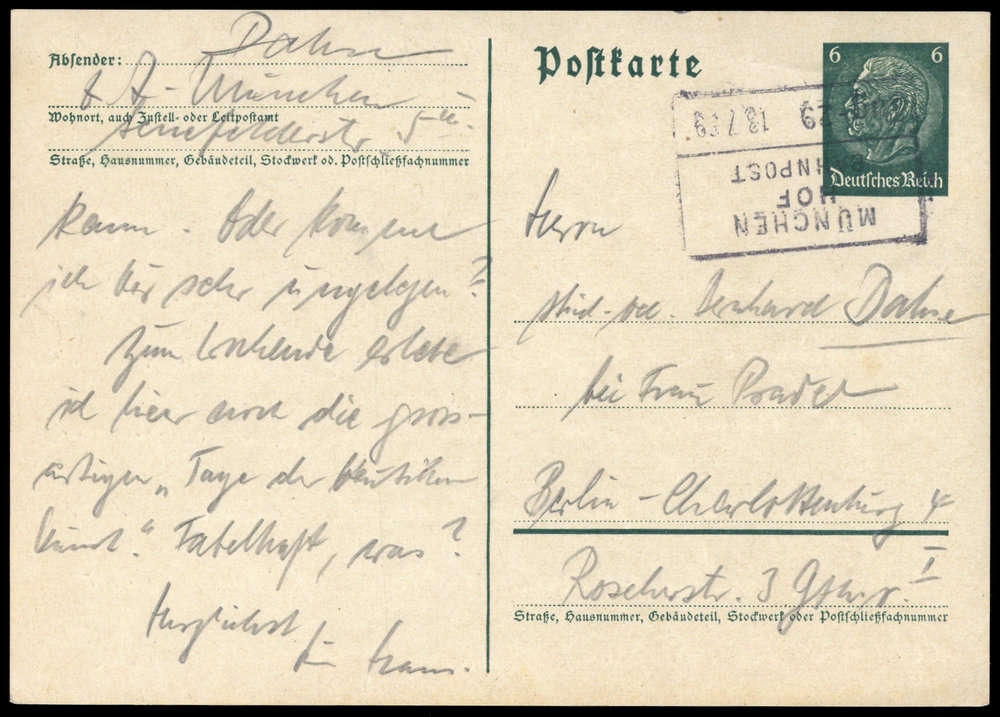 Absender: Dahse
z. Z. München
Wohnort, auch Zustell- oder Leitpostamt
Senefelderstr. 5 II.
Straße, Hausnummer, Gebäudeteil, Stockwerk od. Postschließfachnummer
kann. Oder komme
ich Dir sehr ungelegen?
Zum Wochenende erlebe
ich hier noch die gross-
artigen „Tage der Deutschen
Kunst." Fabelhaft, was?
Herzlichst
Dein Hans.
Postkarte
6 6
Deutsches Reich
MÜNCHEN
HOF
BAHNPOST
18.7.39
Herrn
Bernhard Dahse
bei Frau Pradel
Berlin-Charlottenburg 4
Roscherstr. 3 Gths. I
Straße, Hausnummer, Gebäudeteil, Stockwerk oder Postschließfachnummer